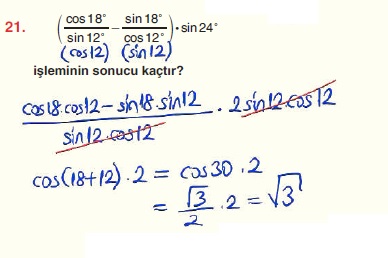 21. (cos18°/sin12° − sin18°/cos12°) · sin24°
(cos12) (sin12)
işleminin sonucu kaçtır?
cos18.cos12 − sin18.sin12 / sin12.cos12 . 2sin12.cos12
cos(18+12).2 = cos30.2
= √3/2 .2 = √3